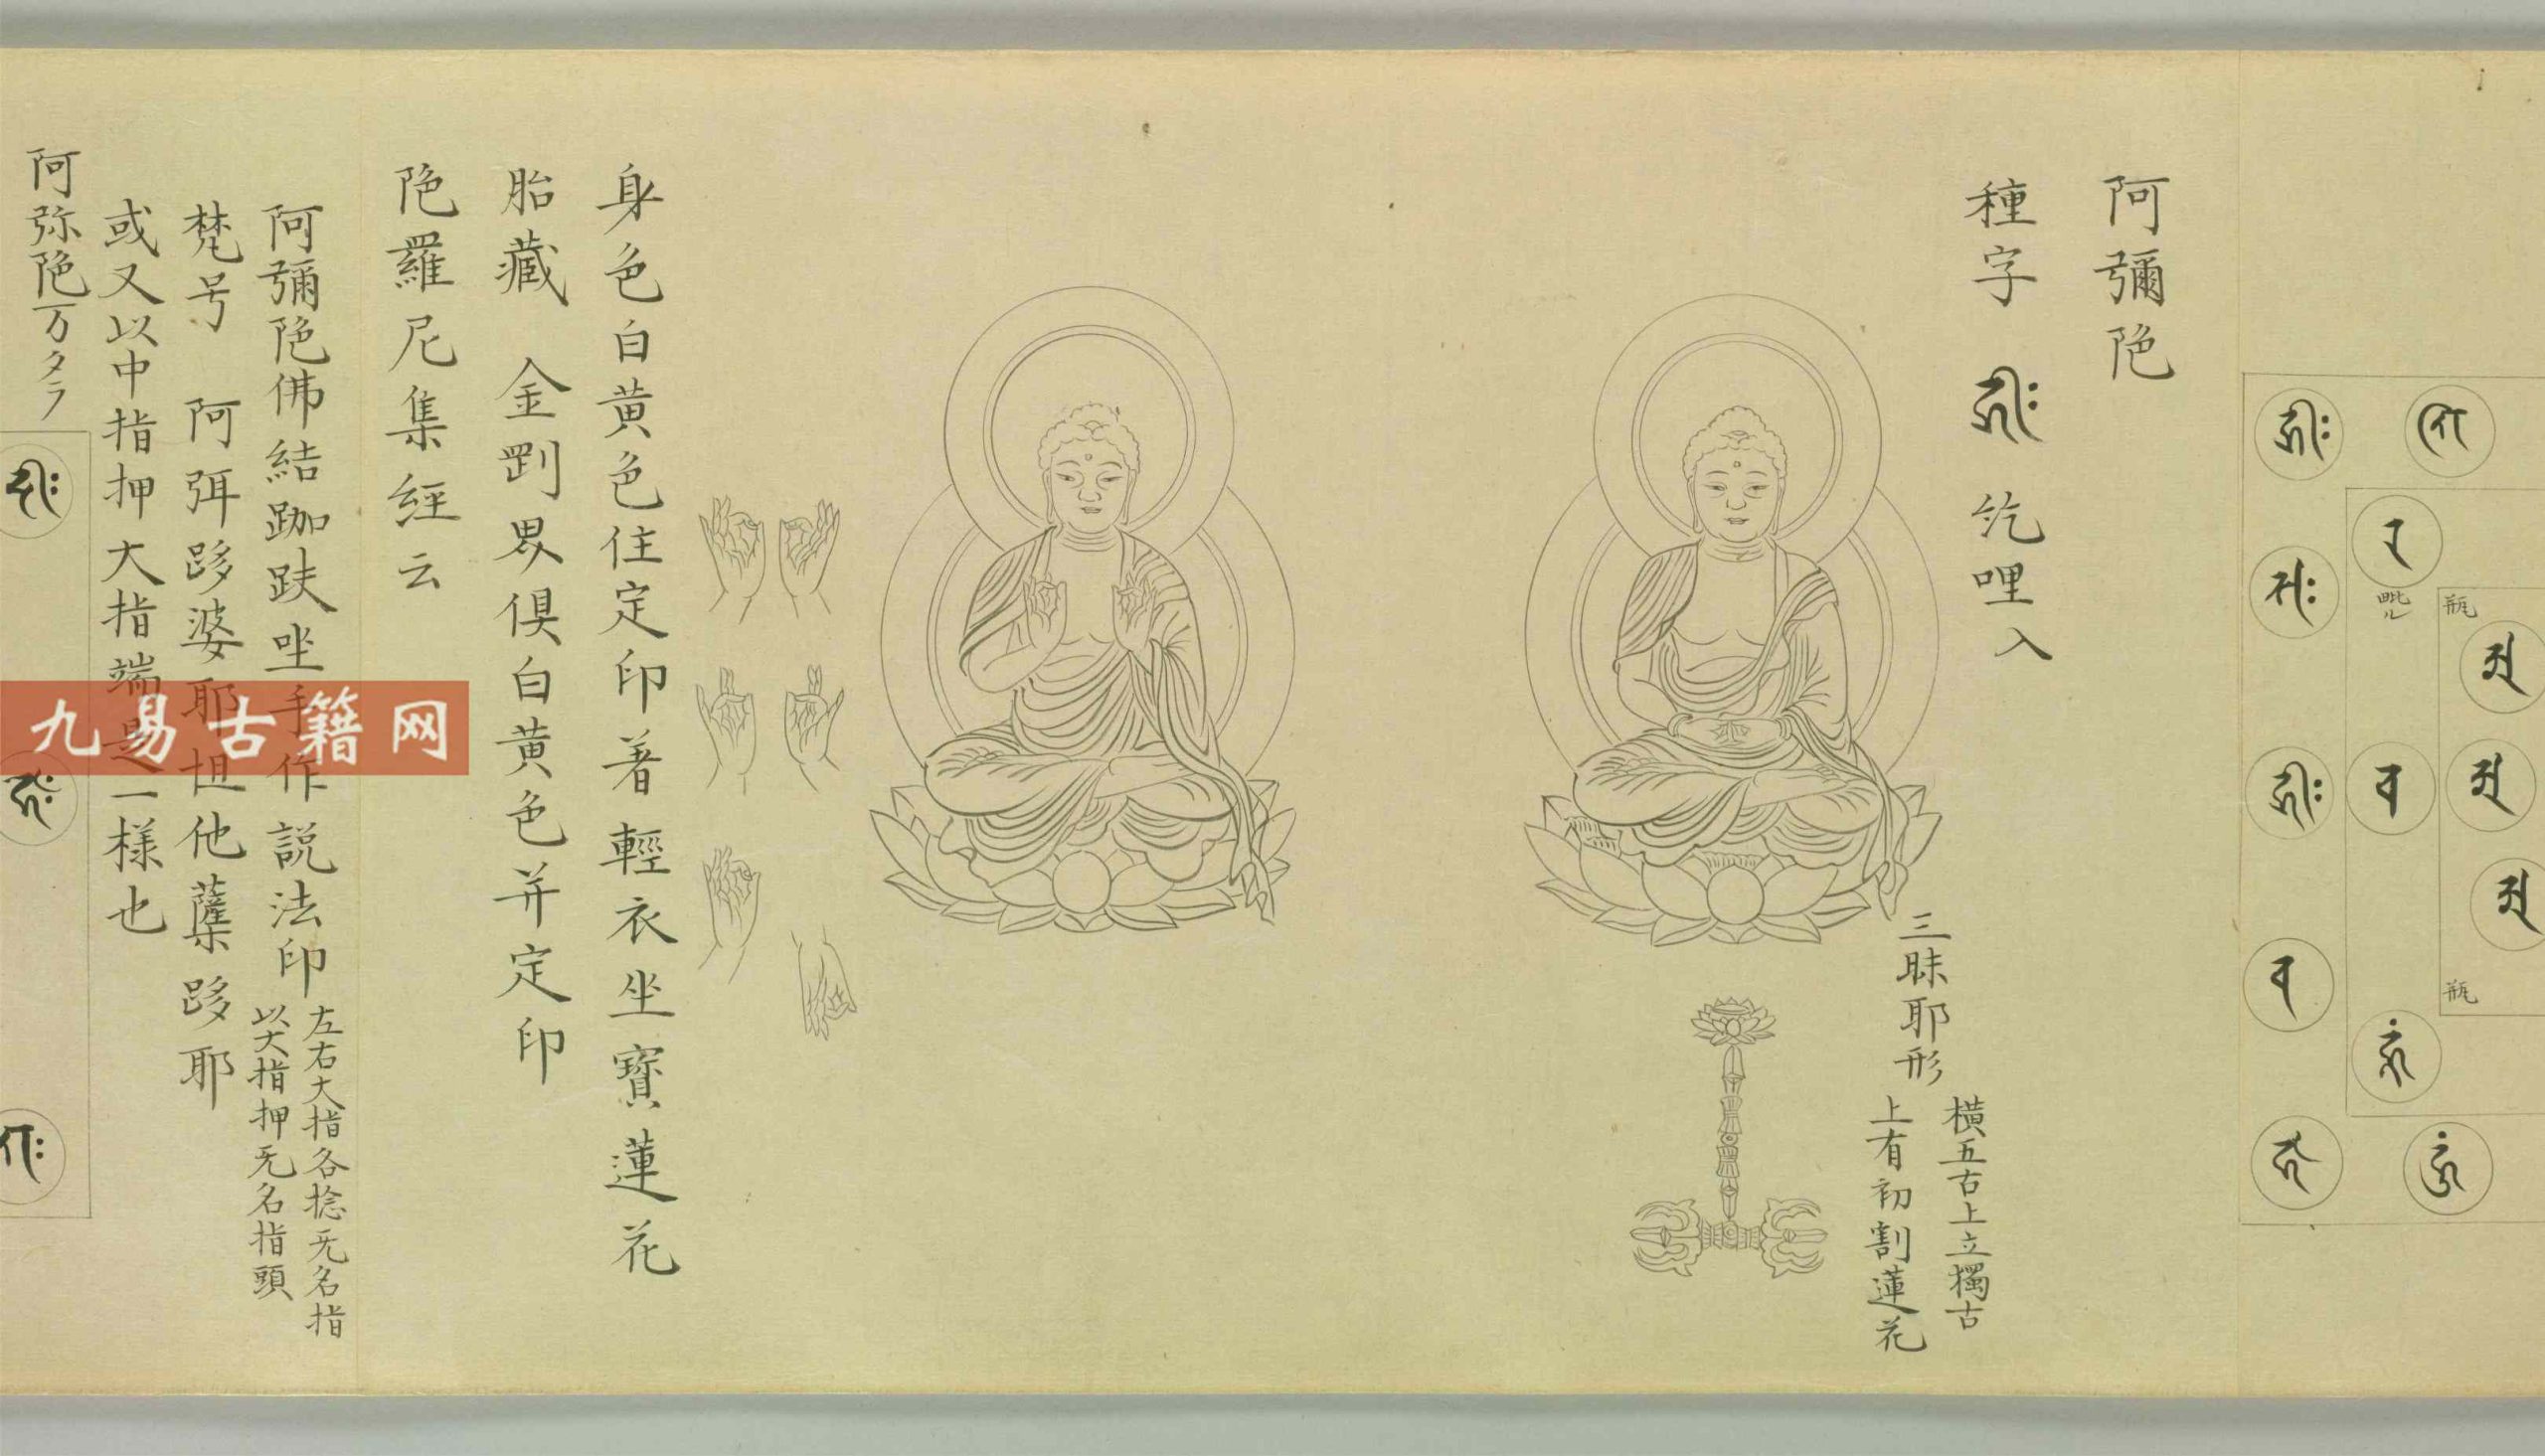 瓶
瓶
毗ル
阿彌陁
種字 𑖮𑖿𑖨𑖱𑖾 紇哩入
三昧耶形
横五古上立獨古
上有初割蓮花
身色白黄色住定印著輕衣坐寳蓮花
胎藏 金剛界俱白黄色并定印
陁羅尼集経云
阿彌陁佛結跏趺坐手作説法印
左右大指各捻无名指
以大指押无名指頭
梵号 阿弭跢婆耶怛他蘖跢耶
或又以中指押大指端是一様也
阿弥陁万タラ
九易古籍网